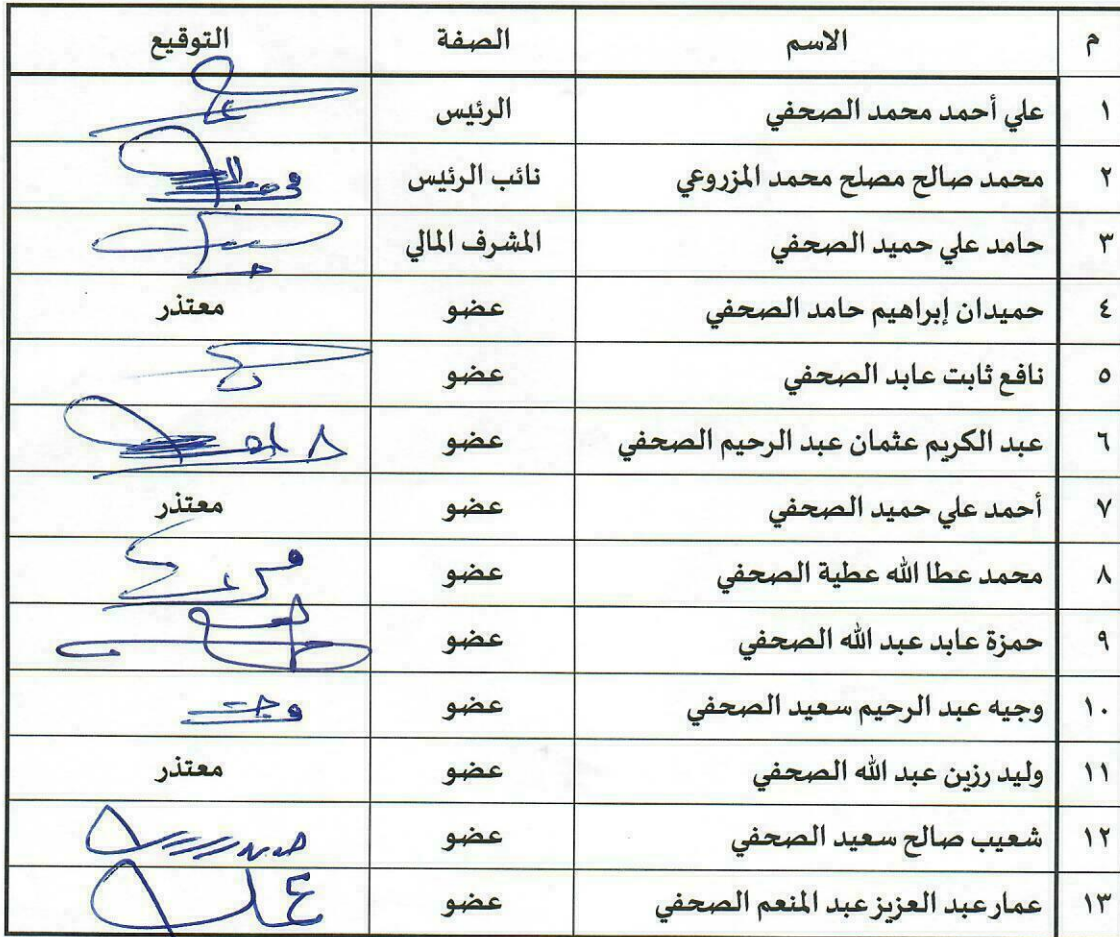 م الاسم الصفة التوقيع
١ علي أحمد محمد الصحفي الرئيس
٢ محمد صالح مصلح محمد المزروعي نائب الرئيس
٣ حامد علي حميد الصحفي المشرف المالي
٤ حميدان إبراهيم حامد الصحفي عضو معتذر
٥ نافع ثابت عابد الصحفي عضو
٦ عبد الكريم عثمان عبد الرحيم الصحفي عضو
٧ أحمد علي حميد الصحفي عضو معتذر
٨ محمد عطا الله عطية الصحفي عضو
٩ حمزة عابد عبد الله الصحفي عضو
١٠ وجيه عبد الرحيم سعيد الصحفي عضو
١١ وليد رزين عبد الله الصحفي عضو معتذر
١٢ شعيب صالح سعيد الصحفي عضو
١٣ عمار عبد العزيز عبد المنعم الصحفي عضو